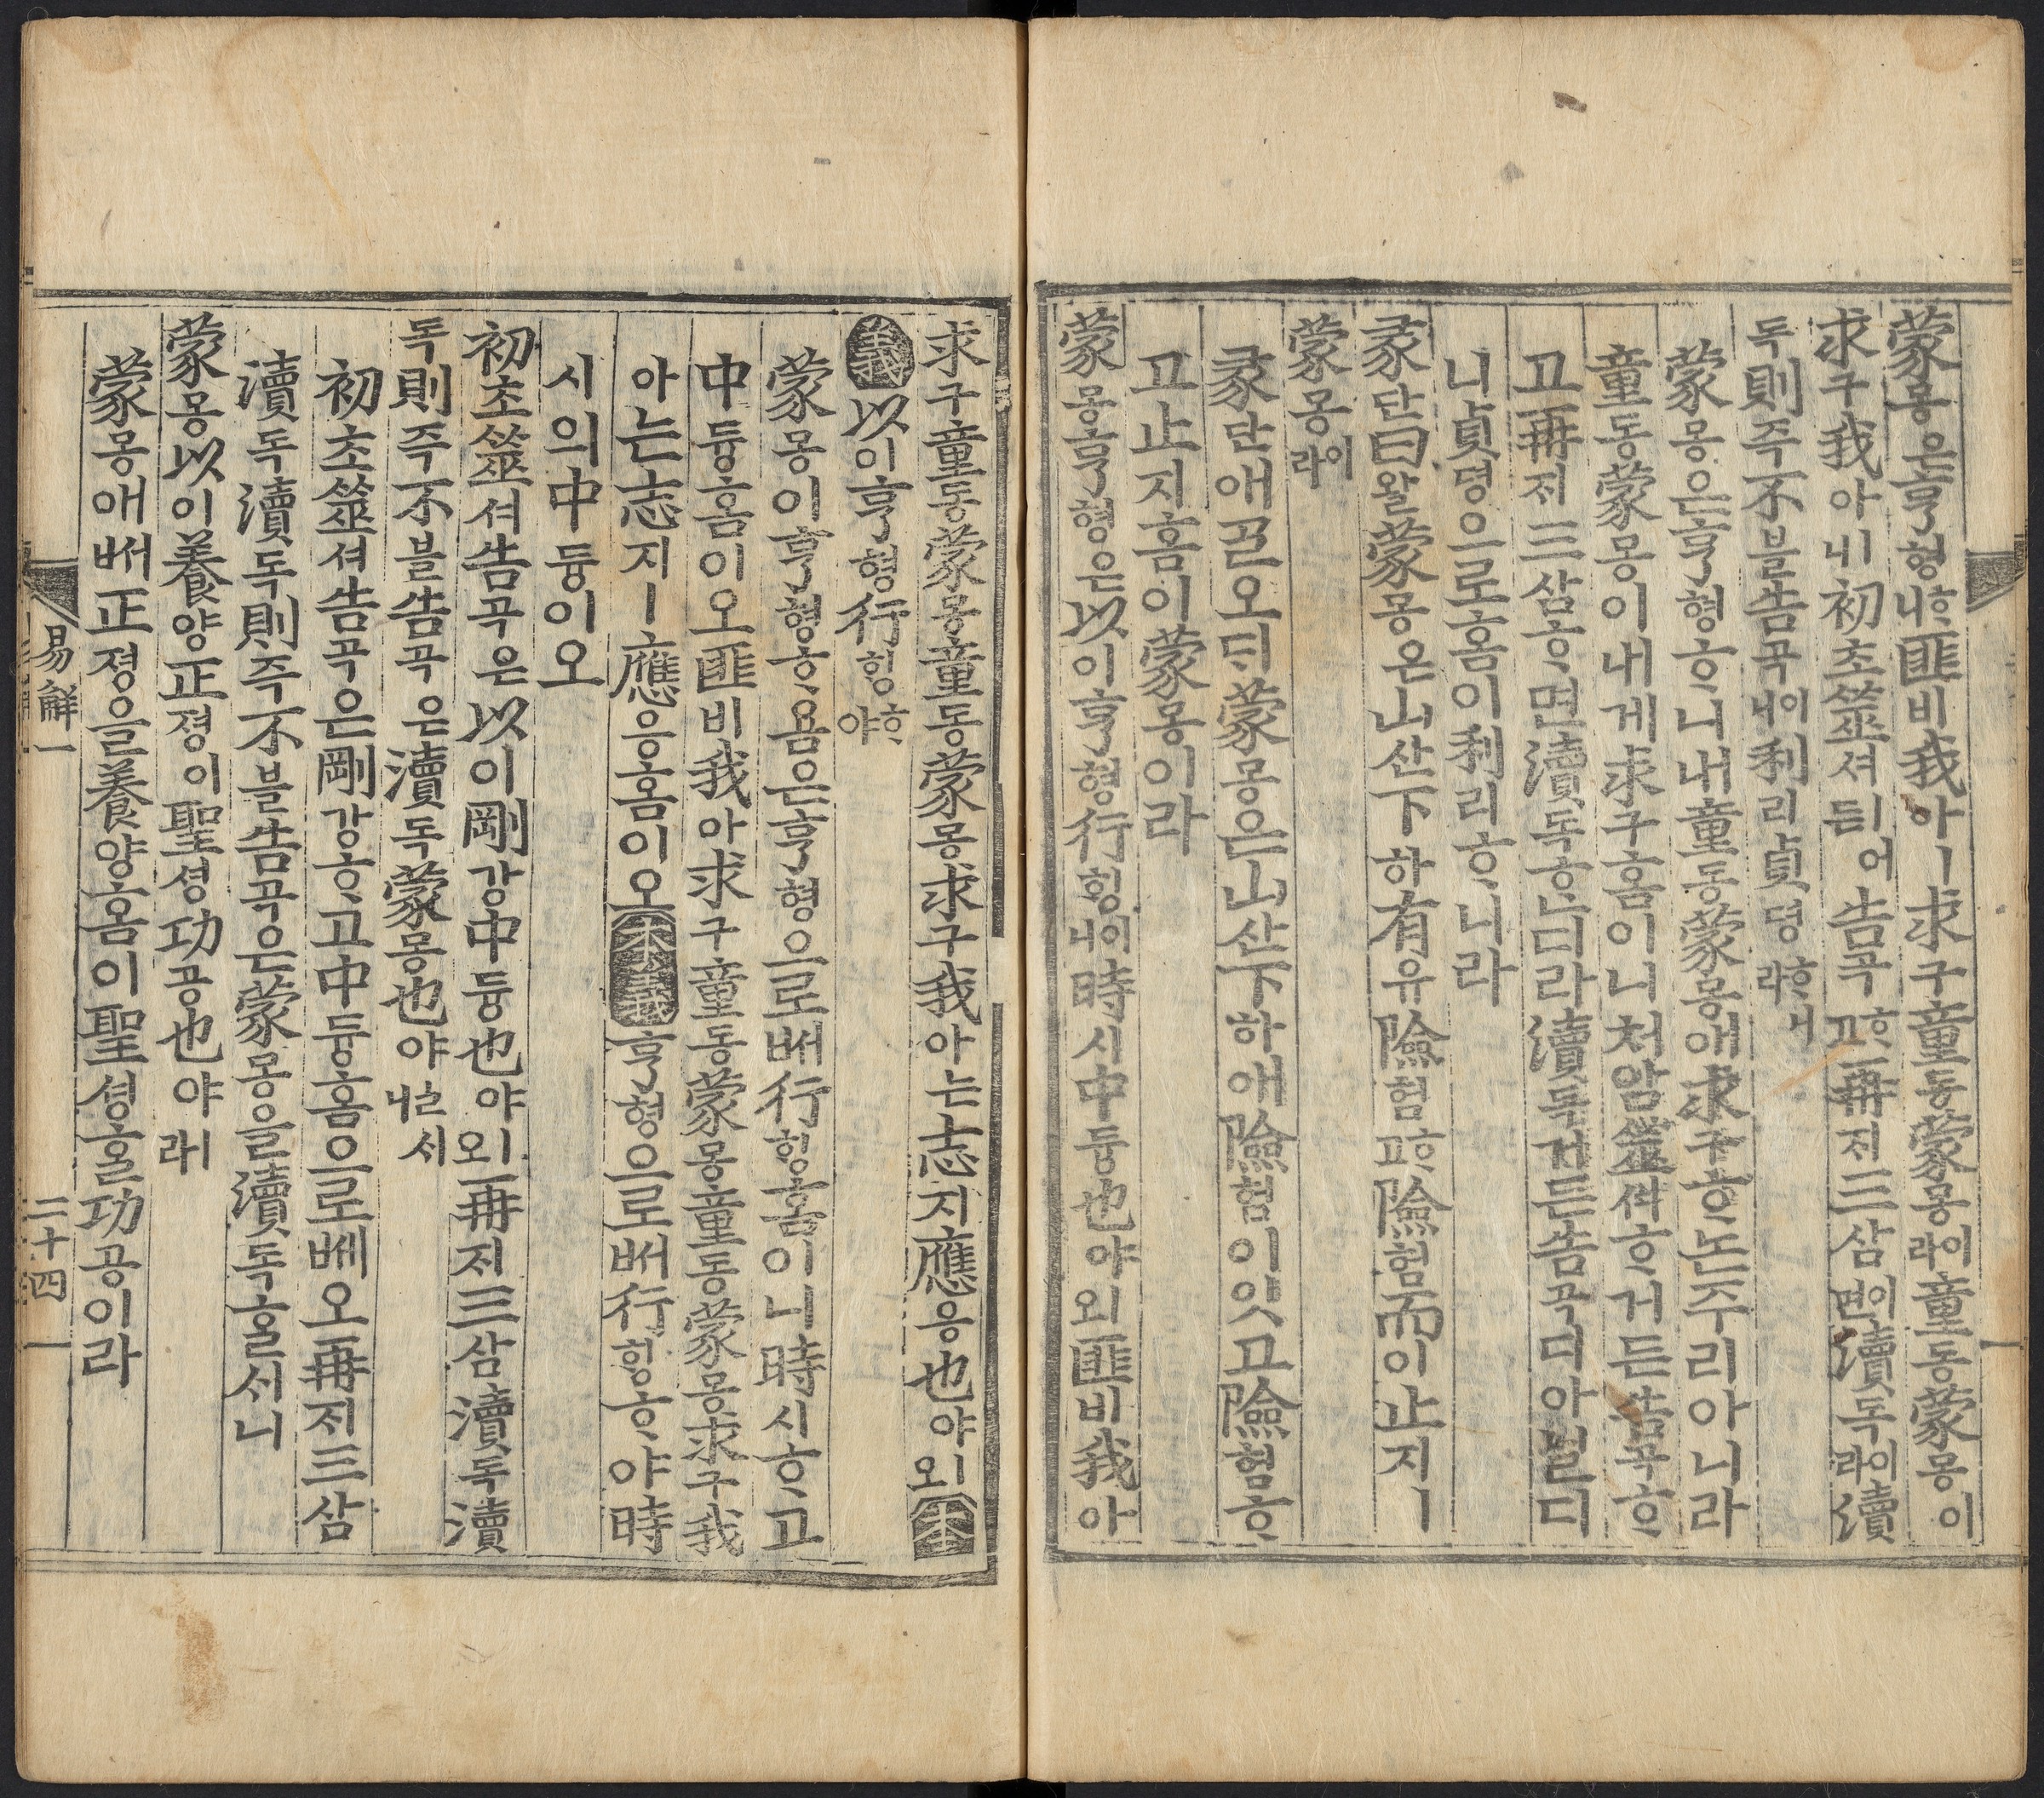 蒙몽은亨형ᄒᆞ니匪비我아ㅣ求구童동蒙몽이라童동蒙몽이
求구我아ㅣ니初초筮셔ㅣ어든告곡ᄒᆞ고再ᄌᆡ三삼이면瀆독이라瀆
독則즉不블告곡이니利리貞뎡ᄒᆞ니라
蒙몽은亨형ᄒᆞ니내童동蒙몽애求구ᄒᆞᄂᆞᆫ주리아니라
童동蒙몽이내게求구홈이니처암筮셔ᄒᆞ거든告곡ᄒᆞ
고再ᄌᆡ三삼ᄒᆞ면瀆독ᄒᆞᆫ디라瀆독거든告곡디아닐디
니貞뎡으로홈이利리ᄒᆞ니라
彖단曰왈蒙몽은山산下하有유險험ᄒᆞ고險험而이止지ㅣ
蒙몽이라
彖단애ᄀᆞᆯ오ᄃᆡ蒙몽은山산下하애險험이잇고險험ᄒᆞ
고止지홈이蒙몽이라
蒙몽亨형은以이亨형行ᄒᆡᆼ이니時시中듕也야ㅣ오匪비我아
求구童동蒙몽童동蒙몽求구我아ᄂᆞᆫ志지應응也야ㅣ오本
義以이亨형行ᄒᆡᆼᄒᆞ야
蒙몽이亨형ᄒᆞ욤은亨형으로ᄡᅥ行ᄒᆡᆼ홈이니時시ᄒᆞ고
中듕홈이오匪비我아求구童동蒙몽童동蒙몽求구我
아ᄂᆞᆫ志지ㅣ應응홈이오本義亨형으로ᄡᅥ行ᄒᆡᆼᄒᆞ야時
시의中듕이오
初초筮셔告곡은以이剛강中듕也야ㅣ오再ᄌᆡ三삼瀆독瀆
독則즉不블告곡은瀆독蒙몽也야ㅣᆯᄉᆡ니
初초筮셔告곡은剛강ᄒᆞ고中듕홈으로ᄡᅦ오再ᄌᆡ三삼
瀆독瀆독則즉不블告곡은蒙몽을瀆독ᄒᆞᆯᄉᆡ니
蒙몽以이養양正졍이聖셩功공也야ㅣ라
蒙몽애ᄡᅥ正졍을養양홈이聖셩ᄒᆞᆯ功공이라
易解一 二十四